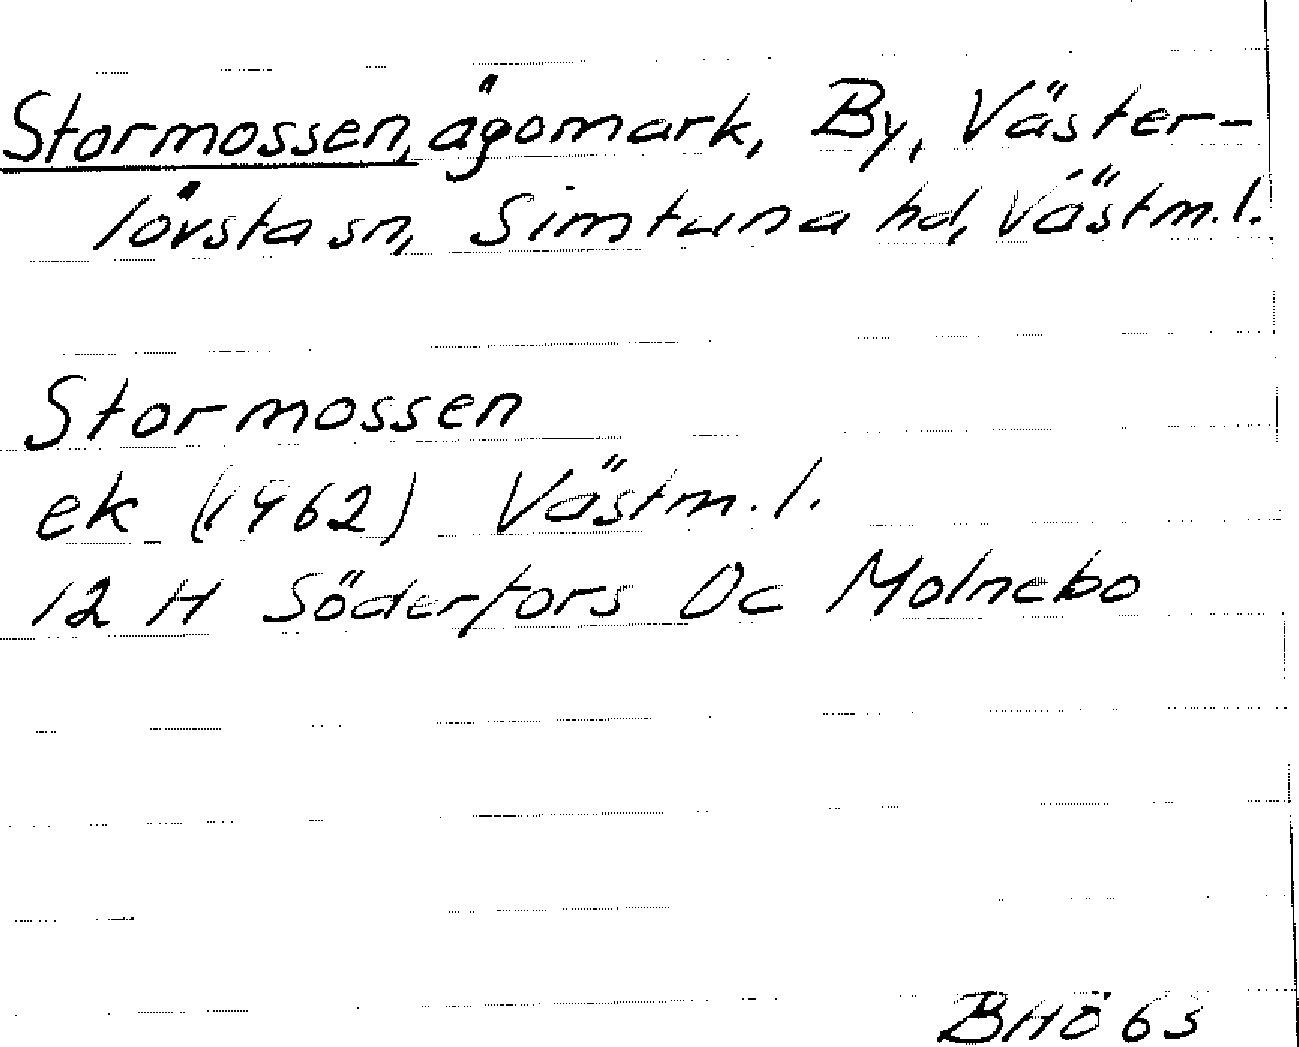 Stormossen, ägomark, By, Väster-
lövsta sn, Simtuna hd, Västm. l.
Stormossen
ek (1962) Västm. l.
12 H Söderfors 0c Molnebo
BHÖ 63